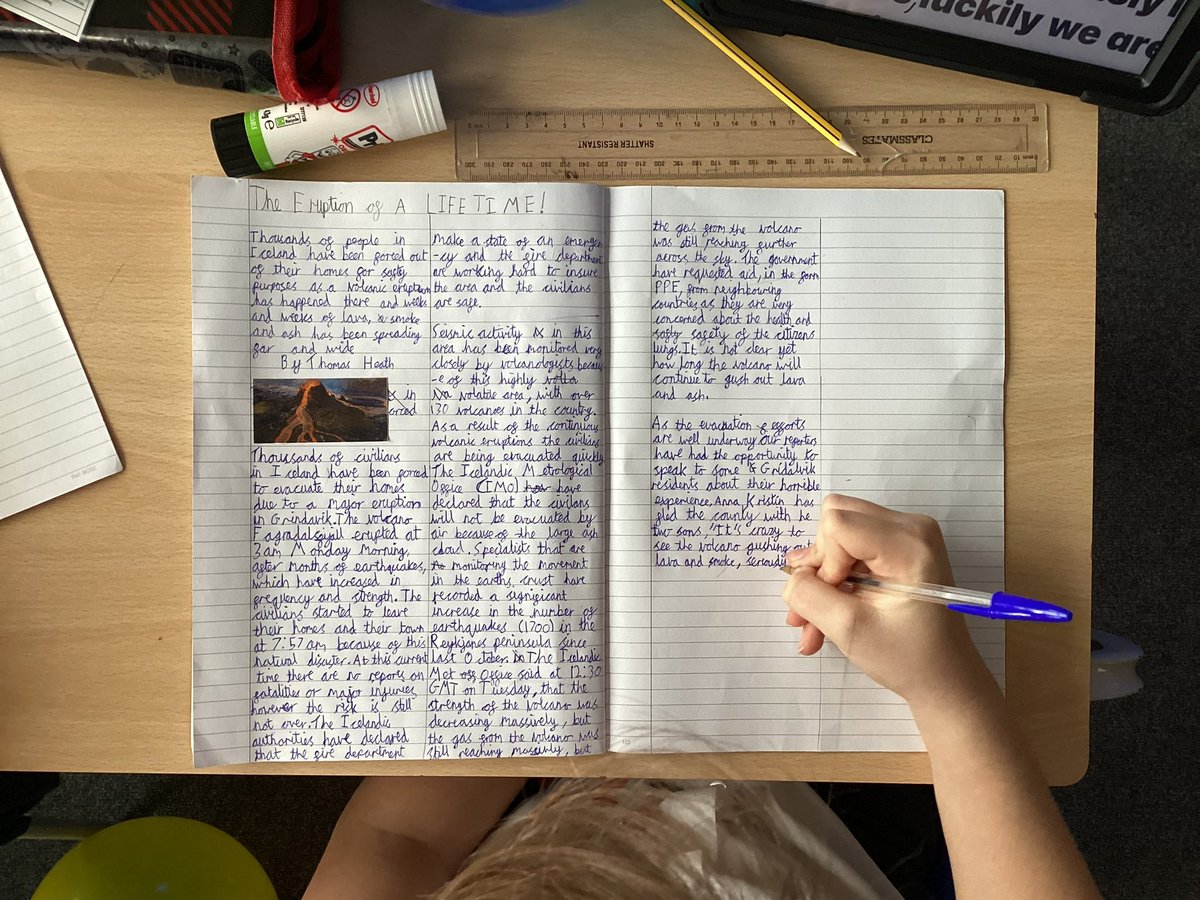 The ERUPTION OF A LIFETIME!
Thousands of people in
Iceland have been forced out
of their homes for safty
purposes as a volcanic eruption
has happened there and weeks
and weeks of lava, smoke
and ash has been spreading
far and wide
By Thomas Heath
in
forced
Thousands of civilians
in Iceland have been forced
to evacuate their homes
due to a major eruption
in Grindavik. The volcano
Fagradalsfjall erupted at
3am Monday morning,
after months of earthquakes,
which have increased in
frequency and strength. The
civilians started to leave
their homes and their town
at 7:57am because of this
natural disaster. At this current
time there are no reports on
fatalities or major injuries
however the risk is still
not over. The Icelandic
authorities have declared
that the fire department
make a state of an emergen
-cy and the fire department
are working hard to insure
the area and the civilians
are safe.
Seismic activity in this
area has been monitored very
closely by volcanologists becaus
-e of this highly volta
volatile area, with over
130 volcanoes in the country.
As a result of the continuous
volcanic eruptions the civilians
are being evacuated quickly
The Icelandic Metrological
Office (IMO) have
declared that the civilans
will not be evacuated by
air because of the large ash
cloud. Specialists that are
monitoring the movement
in the earths, crust have
recorded a significant
increase in the number of
earthquakes (1700) in the
Reykjanes peninsula since
last October. The Icelandic
Met Office said at 12:30
GMT on Tuesday, that the
strength of the volcano was
decreasing massively, but
the gas from the volcano was
still reaching massivly, but
the gas from the volcano
was still reaching further
across the sky. The government
have requested aid, in the form
PPE, from neighbouring
countries as they are very
concerned about the health and
safty safety of the citizens
lungs. It is not clear yet
how long the volcano will
continue to gush out lava
and ash.
As the evacuation efforts
are well underway our reporters
have had the opportunity to
speak to some Gridalvik
residents about their horrible
experience. Anna Kristin has
fled the county with he
two sons, "It's crazy to
see the volcano gushing out
lava and smoke, seriously
CLASSMATES
SHATTER RESISTANT
luckily we are